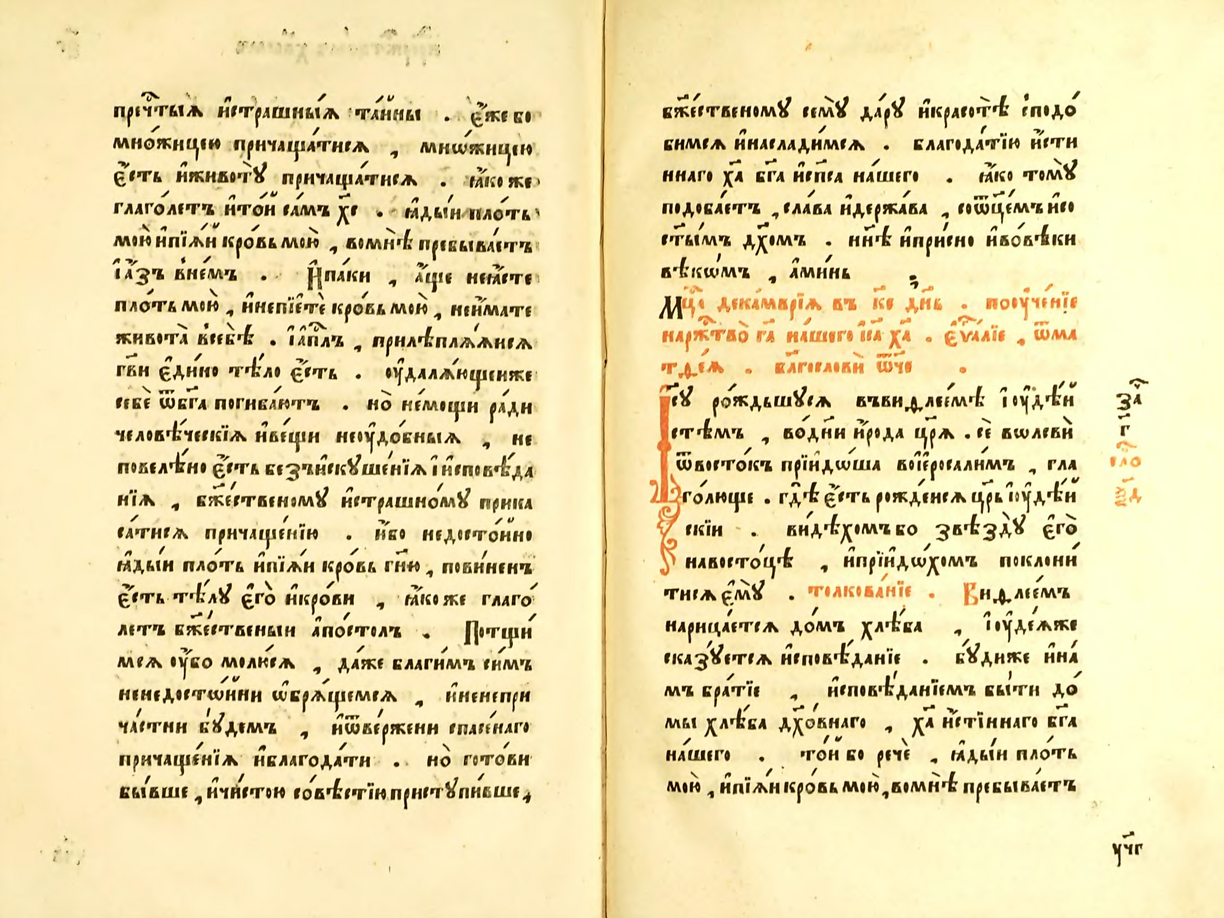 пречⷭ҇тыѧ и҆страшны́ѧ та́йны . є҆́же бо
мно́жицею причаща́тисѧ , мнѡ́жицею
є҆́сть и҆животꙋ̀ причаща́тисѧ . ꙗ҆́ко же
глаго́летъ и҆то́й са́мъ хс҃ . ꙗ҆ды́и пло́ть
мою̀ и҆пїѧ́й кро́вь мою̀ , вомнѣ̀ пребыва́етъ
і҆а҆́зъ в̾не́мъ . И҆па́ки , а҆́ще неꙗ҆́сте
пло́ть мою̀ , и҆непїе́те кро́вь мою̀ , неи҆́мате
живота̀ в̾себѣ̀ . і҆а҆пⷭ҇лъ , прилѣплѧ́ѧйсѧ
гв҃и є҆ди́но тѣ́ло є҆́сть . оу҆далѧ́ющеиже
себѐ ѿбг҃а погиба́ютъ . но̀ не́мощи ра́ди
человѣ́ческїѧ и҆ве́щи неоу҆до́бныѧ , не
повелѣ́но є҆́сть без̾и҆скꙋше́нїѧ і҆и҆сповѣ́да
нїѧ , бж҃е́ственомꙋ и҆стра́шномꙋ прика
са́тисѧ причаще́нїю . и҆́бо недосто́йно
ꙗ҆ды́и пло́ть и҆пїѧ́й кро́вь гн҃ю , пови́ненъ
є҆́сть тѣ́лꙋ є҆гѡ̀ и҆кро́ви , ꙗ҆́ко же глаго́
летъ бж҃е́ственыи а҆по́столъ . Потщи́
мсѧ оу҆́бо молю́сѧ , да́же благи́мъ си́мъ
ненедостѡ́йни ѡ҆брѧ́щемсѧ , и҆ненепри
ча́стни бꙋ́демъ , и҆ѿве́ржени спасе́наго
причаще́нїѧ и҆благода́ти . но̀ гото́ви
бы́вше , и҆чи́стою со́вѣстїю пристꙋпи́вше ,
бж҃е́ственомꙋ семꙋ̀ да́рꙋ и҆красотѣ̀ сподо́
бимсѧ и҆наслади́мсѧ . благода́тїю и҆́сти
ннаго хⷭ҇а бг҃а и҆сп҃са на́шего . ꙗ҆́ко томꙋ̀
подоба́етъ , сла́ва и҆держа́ва , соѻ҆ц҃е́мъ и҆со
ст҃ы́мъ дх҃омъ . нн҃ѣ и҆при́сно и҆вовѣ́ки
вѣкѡ́мъ , а҆ми́нь
Мц҃а декамврїѧ въ к҃е дн҃ь . поꙋче́нїе
нарⷭ҇жтво̀ гⷭ҇а на́шего і҆с҃а хⷭ҇а . є҆ѵⷢ҇алїе , ѿма
тѳе́ѧ . благословѝ ѻ҆́ч҃е .
І҆с҃ꙋ ро́ждьшꙋсѧ въвиѳлее́мѣ і҆ꙋде́й
стѣ́мъ , во́дни и҆́рода цр҃ѧ̀ . сѐ вѡлсвѝ
ѿвосто́къ прїидѡ́ша воі҆ерⷭ҇оали́мъ , гла
го́люще . гдѣ̀ є҆́сть рожде́исѧ цр҃ь і҆ꙋде́й
скїи . ви́дѣхомъбо ѕвѣ́здꙋ є҆гѡ̀
навосто́цѣ , и҆прїидо́хомъ поклони́
тисѧ є҆мꙋ̀ . толкова́нїе . Виѳлее́мъ
нарица́етсѧ до́мъ хлѣ́ба , і҆ꙋде́ѧже
ска́зꙋетсѧ и҆сповѣ́данїе . бꙋ́диже и҆на́
мъ бра́тїе , и҆сповѣ́данїемъ бы́ти до́
мы хлѣ́ба дх҃о́внаго , хⷭ҇а и҆́стїннаго бг҃а
на́шего . то́й бо речѐ , ꙗ҆ды́и пло́ть
мою̀ , и҆пїѧ́й кро́вь мою̀ , вомнѣ̀ пребыва́етъ
заⷱ
г҃
ѱ҃чг